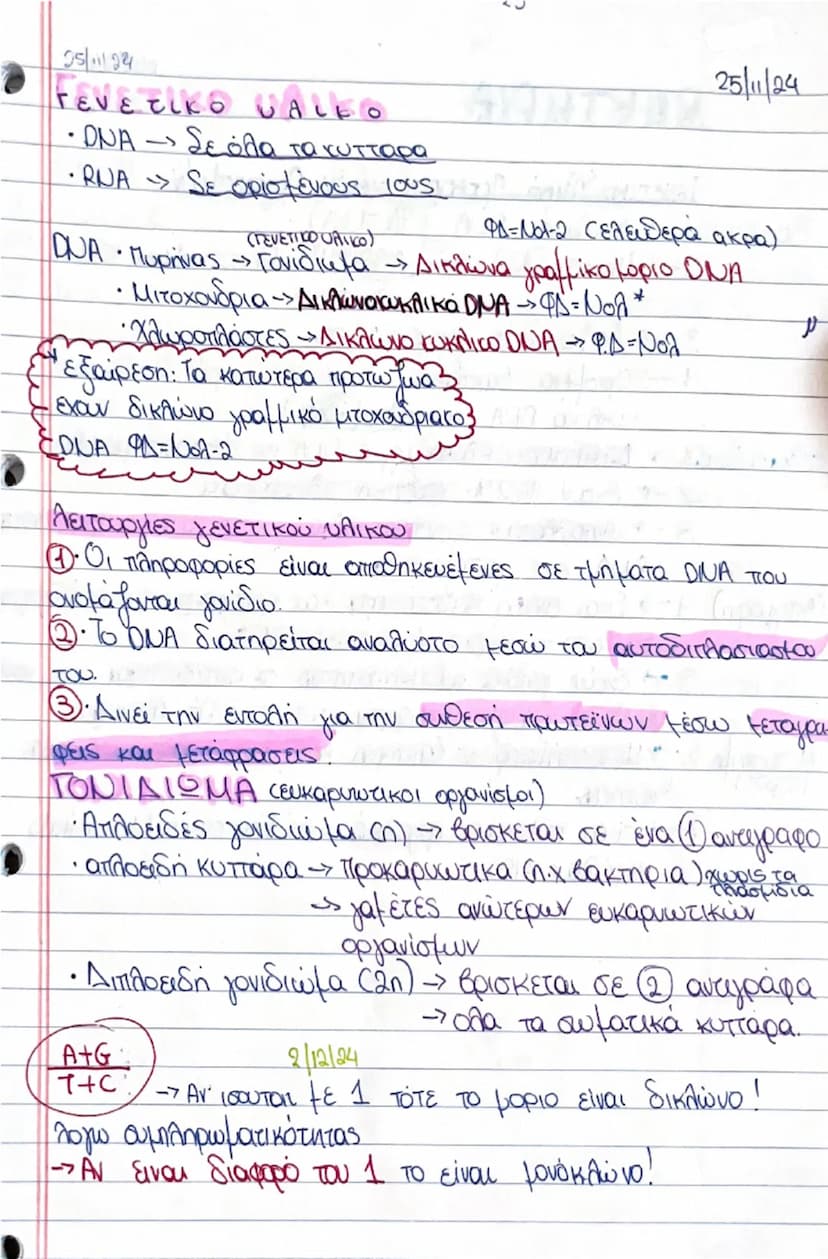 25/11/24
25/11/24
Γενετικό υλικό
· DNA → Σε όλα τα κυτταρα
· RNA → Σε ορισμένους ιους
ΦΔ=Νολ-2 (ελευθερά ακρα)
(γενετικό υλικό)
DNA · Πυρήνας → Γονιδιωμα → Δικλωνα γραμμικο μόριο DNA
· Μιτοχονδρια → Δικλωνο κυκλικό DNA → ΦΔ=Νολ*
· Χλωροπλάστες → Δικλωνο κυκλικο DNA → Φ.Δ=Νολ
* εξαίρεση: Τα κατώτερα πρωτόζωα
εχουν δικλώνο γραμμικό μιτοχονδριακο
DNA ΦΔ=Νολ-2
Λειτουργιες γενετικού υλικου
①· Οι πληροφορίες είναι αποθηκευέμενες σε τμήματα DNA που
ονομάζονται γονίδιο.
②· Το DNA διατηρείται αναλύστο μεσω του αυτοδιπλασιασμου
του.
③· Δινει την εντολή για την συθεσή πρωτεινων μέσω μεταγρα
φεις και μετάφρασεις
ΓΟΝΙΔΙΩΜΑ (ευκαρυωτικοι οργανίσμοι)
· Απλοειδές γονιδιώμα (n) → βρισκεται σε ένα ① αντιγραφο
· απλοειδή κυττάρα → Προκαρυωτικα (π.χ βακτηρια) χωρις τα
πλασμιδια
→ γαμέτες ανώτερων ευκαρυωτικών
οργανίσμων
· Διπλοειδή γονιδιώμα (2n) → βρισκεται σε ② αντιγράφα
→ ολα τα σωματικά κυττάρα.
A+G
T+C
2/12/24
→ Αν ισουται με 1 τότε το μοριο είναι δικλώνο!
λογω συμπληρωματικότητας
→ Αν ειναι διαφορό του 1 το είναι μονόκλωνο!